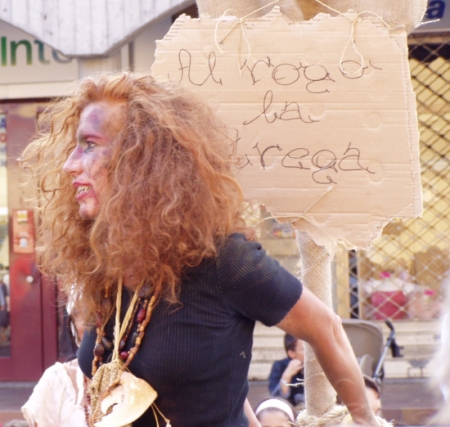 Inte
Al rogo
la
strega